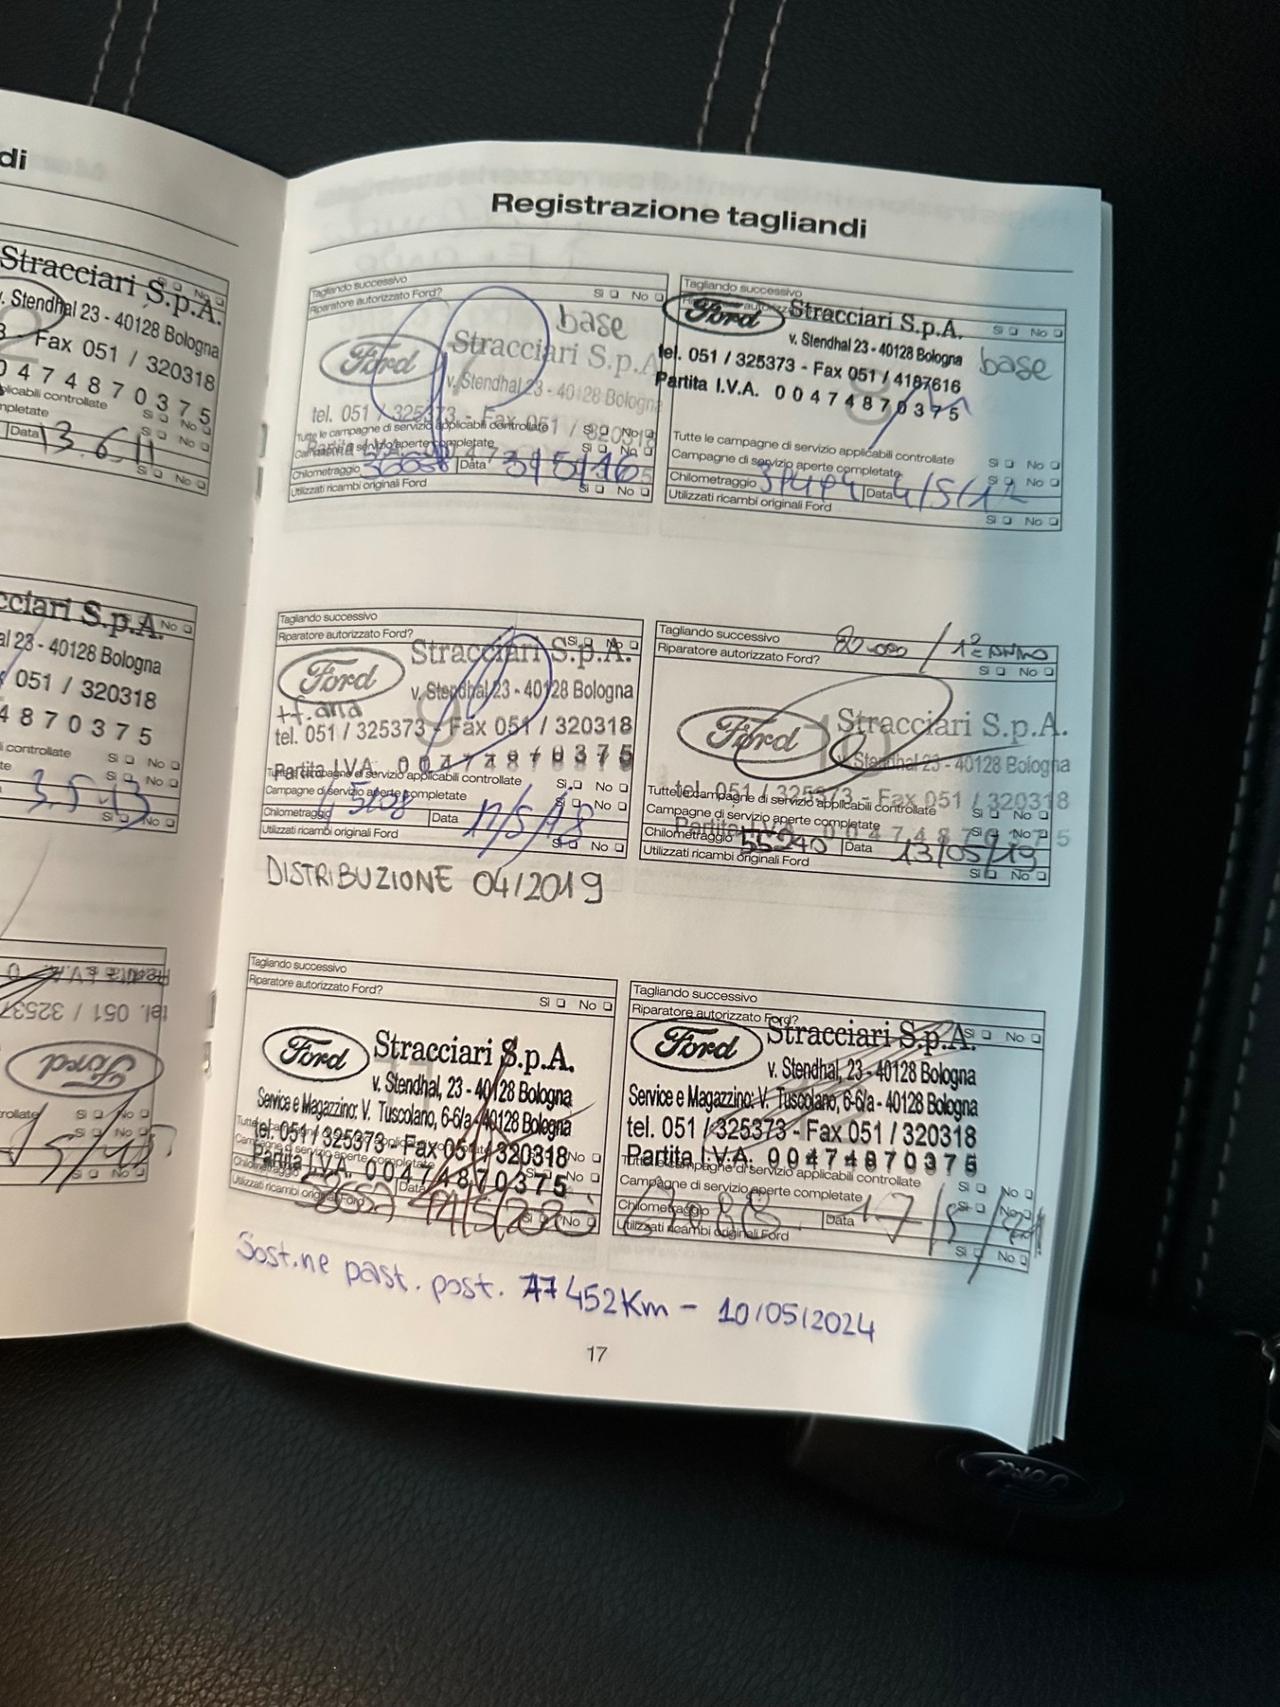 di
Stracciari S.p.A.
v. Stendhal 23 - 40128 Bologna
Fax 051 / 320318
0 4 7 4 8 7 0 3 7 5
applicabili controllate
completate
Sì No
Data 13.6.11
Sì No
S.p.A.
No
23 - 40128 Bologna
051 / 320318
4 8 7 0 3 7 5
controllate
Sì No
Sì No
3.5.13
Sì No
Partita I.V.A. 0
tel. 051 / 32537
Ford
Sì No
Sì No
Sì No
Registrazione tagliandi
Tagliando successivo
Riparatore autorizzato Ford?
Sì No
base
Ford
Stracciari S.p.A
v. Stendhal 23 - 40128 Bologna
tel. 051 / 325373 - Fax 051 / 320318
Tutte le campagne di servizio applicabili controllate
Sì No
Campagne di servizio aperte completate
Sì No
Chilometraggio
Data 3/5/16
Utilizzati ricambi originali Ford
Sì No
Tagliando successivo
Ford
Stracciari S.p.A.
Sì No
v. Stendhal 23 - 40128 Bologna
base
tel. 051 / 325373 - Fax 051 / 4187616
Partita I.V.A. 0 0 4 7 4 8 7 0 3 7 5
8
Tutte le campagne di servizio applicabili controllate
Sì No
Campagne di servizio aperte completate
Sì No
Chilometraggio
Data
Utilizzati ricambi originali Ford
Sì No
Tagliando successivo
Riparatore autorizzato Ford?
Sì No
Ford
Stracciari S.p.A.
v. Stendhal 23 - 40128 Bologna
9
tel. 051 / 325373 - Fax 051 / 320318
Partita I.V.A. 0 0 4 7 4 8 7 0 3 7 5
Tutte le campagne di servizio applicabili controllate
Sì No
Campagne di servizio aperte completate
Sì No
Chilometraggio
Data
Utilizzati ricambi originali Ford
Sì No
DISTRIBUZIONE 04/2019
Tagliando successivo
Riparatore autorizzato Ford?
Sì No
Ford
10
Stracciari S.p.A.
v. Stendhal 23 - 40128 Bologna
tel. 051 / 325373 - Fax 051 / 320318
Tutte le campagne di servizio applicabili controllate
Sì No
Campagne di servizio aperte completate
Partita I.V.A. 0 0 4 7 4 8 7 0 3 7 5
Sì No
Chilometraggio 55240
Data 13/05/19
Utilizzati ricambi originali Ford
Sì No
Tagliando successivo
Riparatore autorizzato Ford?
Sì No
Ford
Stracciari S.p.A.
v. Stendhal, 23 - 40128 Bologna
Service e Magazzino: V. Tuscolano, 6-6/a - 40128 Bologna
tel. 051 / 325373 - Fax 051 / 320318
Partita I.V.A. 0 0 4 7 4 8 7 0 3 7 5
No
Chilometraggio
Data
Utilizzati ricambi originali Ford
Sì No
Tagliando successivo
Riparatore autorizzato Ford?
Sì No
Ford
Stracciari S.p.A.
v. Stendhal, 23 - 40128 Bologna
Service e Magazzino: V. Tuscolano, 6-6/a - 40128 Bologna
tel. 051 / 325373 - Fax 051 / 320318
Partita I.V.A. 0 0 4 7 4 8 7 0 3 7 5
Tutte le campagne di servizio applicabili controllate
Sì No
Campagne di servizio aperte completate
Sì No
Chilometraggio
Data
Utilizzati ricambi originali Ford
Sì No
Sost.ne past. post. 77452Km - 10/05/2024
17
Ford